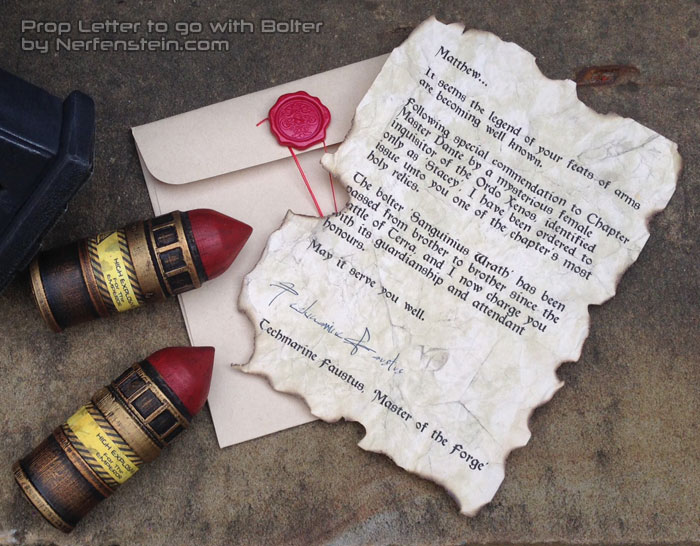 Prop Letter to go with Bolter
by Nerfenstein.com
Matthew...
It seems the legend of your feats of arms
are becoming well known.
Following special commendation to Chapter
Master Dante by a mysterious female
inquisitor of the Ordo Xenos, identified
only as 'Stacey', I have been ordered to
issue unto you one of the chapter's most
holy relics.
The bolter 'Sanguinius Wrath' has been
passed from brother to brother since the
battle of Terra, and I now charge you
with its guardianship and attendant
honours.
May it serve you well.
Techmarine Faustus
Techmarine Faustus, 'Master of the Forge'
HIGH EXPLO
FOR THE
EMPEROR
HIGH EXPLO
FOR THE
EMPEROR